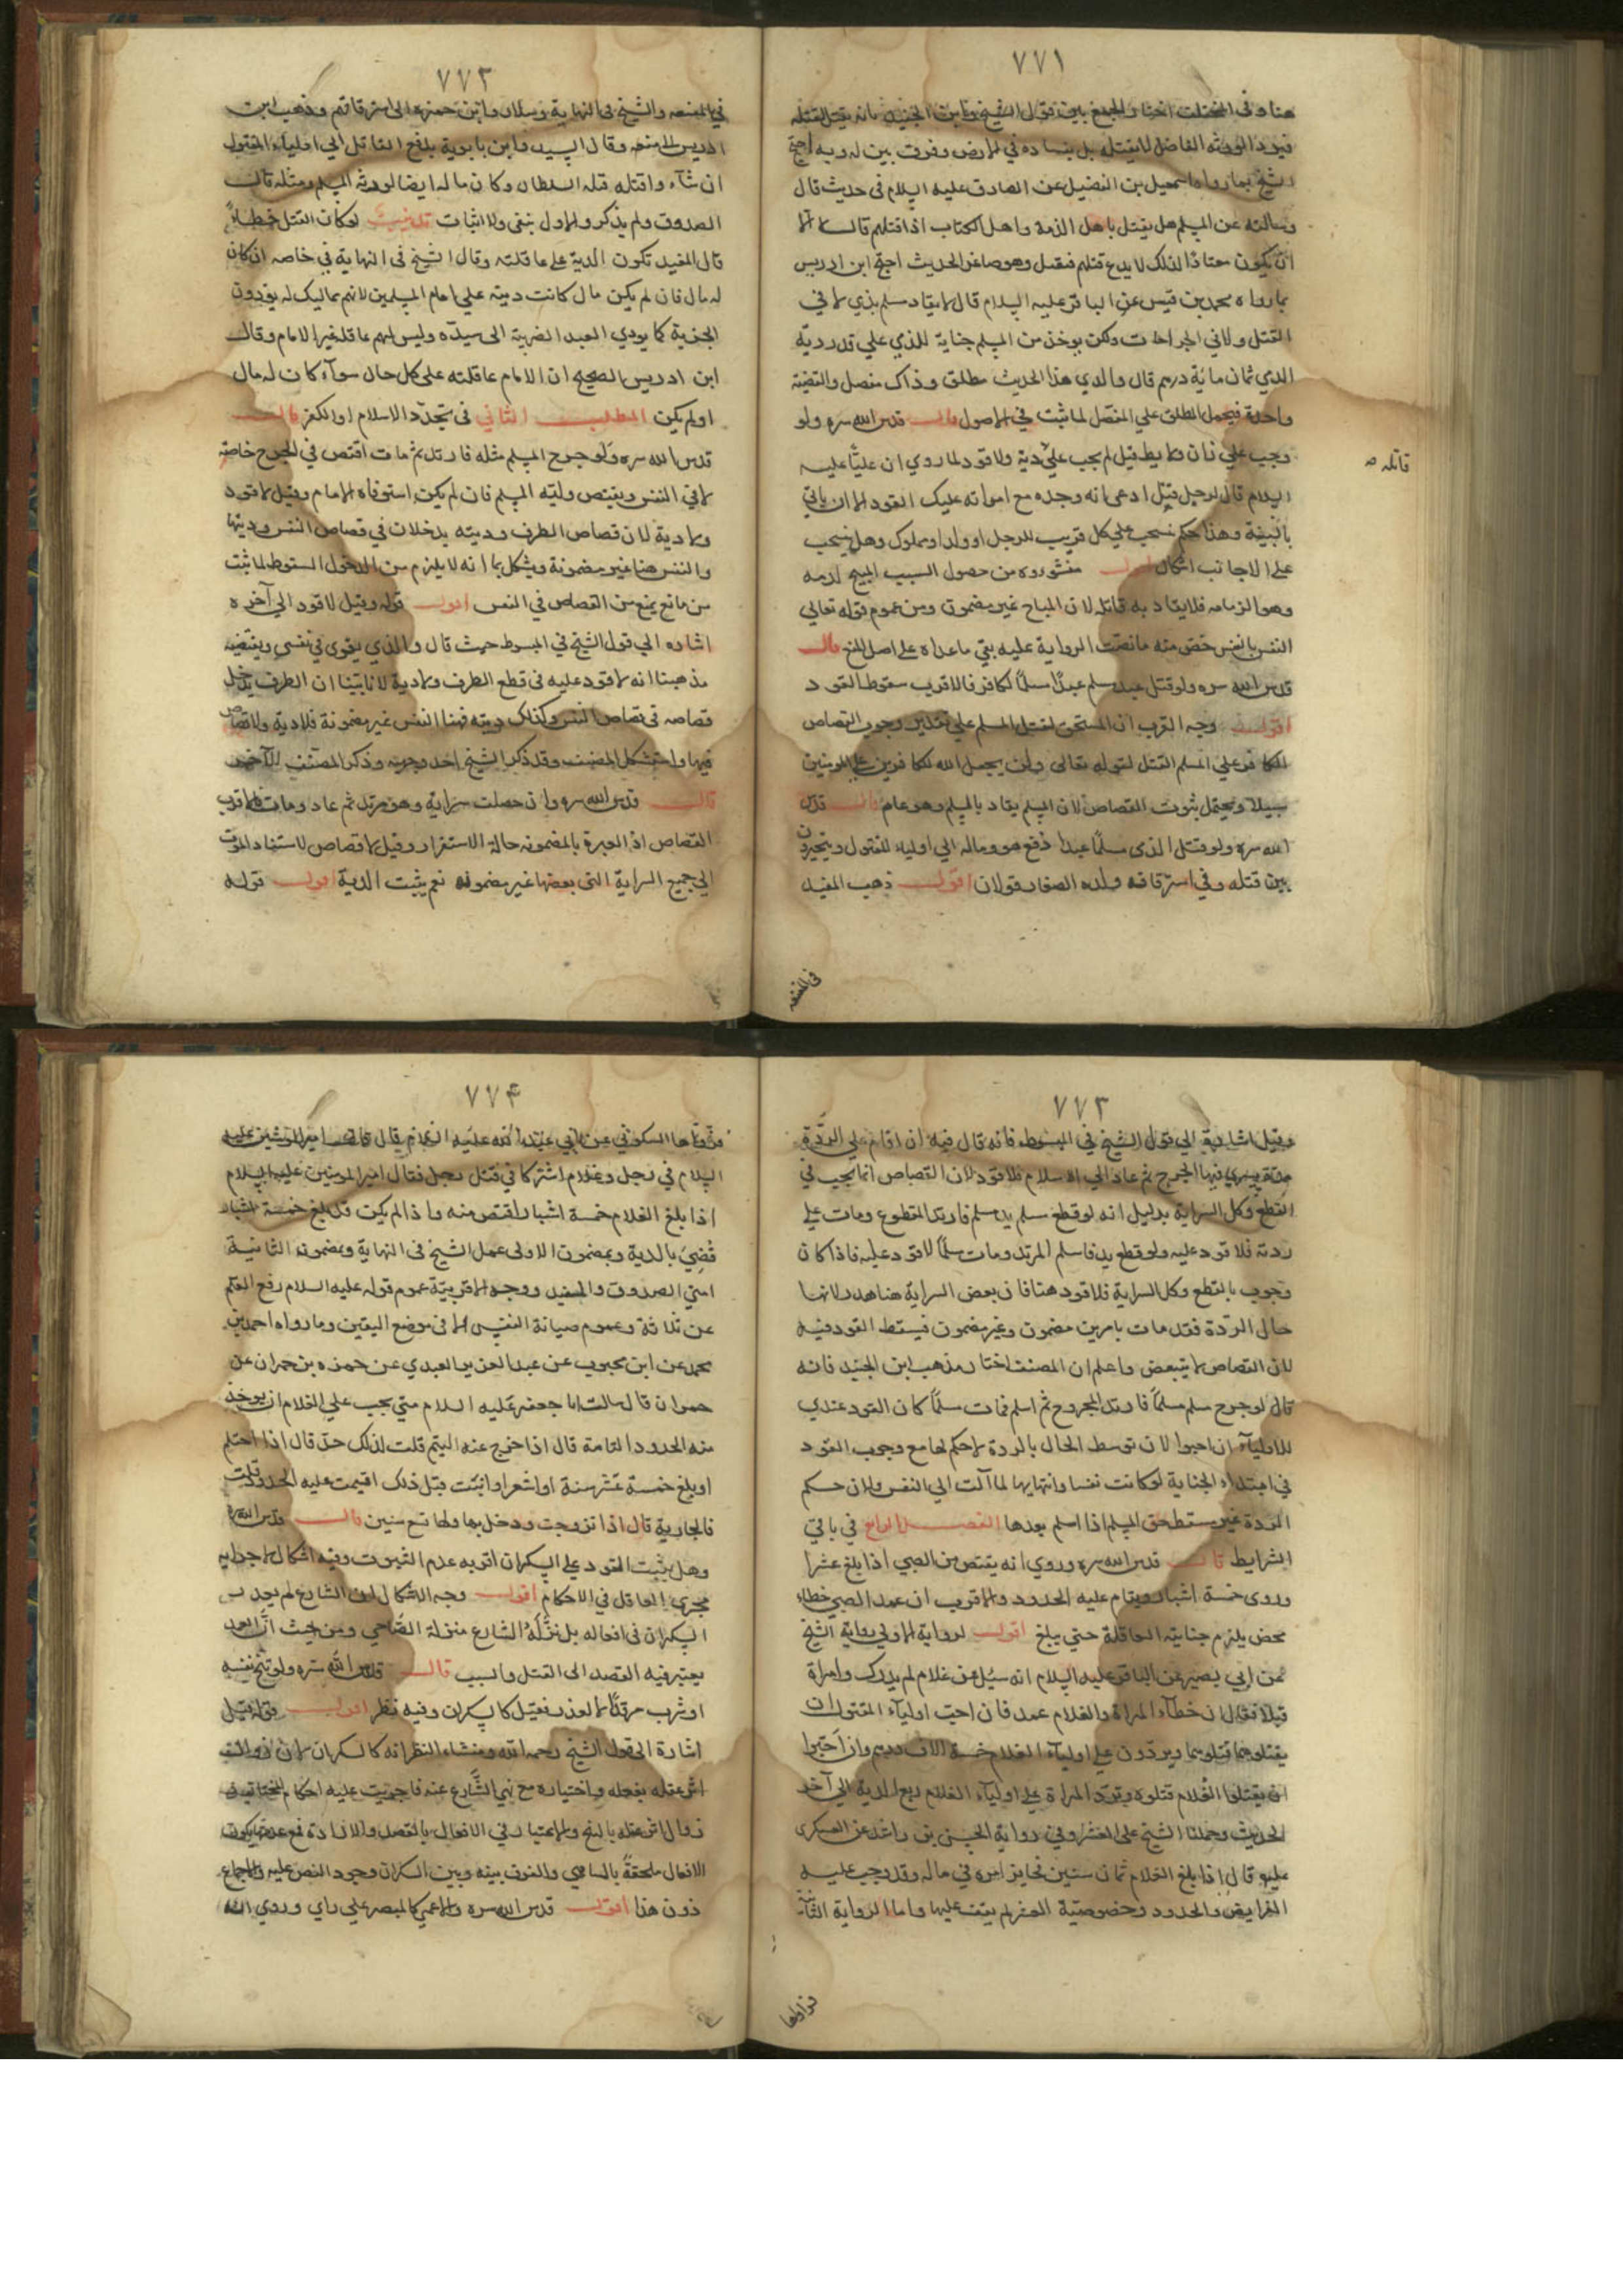 ٧٧١
هنا وفى المختلف اختار الجمع بين قول الشيخ وابن الجنيد بانه يقتل لقتله
فيرد الورثة الفاضل لا بقتله بل بفساده في الارض وفرق بين لرديه احتج
الشيخ بما رواه اسمعيل بن الفضيل عن الصادق عليه السلام فى حديث قال
وسالته عن المسلم هل يقتل باهل الذمة واهل الكتاب اذا قتلهم قال لا الا
ان يكون معتادا لذلك لا يدع قتلهم فيقتل وهو صاغر الحديث احتج ابن ادريس
بما رواه محمد بن قيس عن الباقر عليه السلام قال لا يقاد مسلم بذى لا في
القتل ولا في الجراحات ولكن يوخذ من المسلم جناية للذمي على قدر دية
الذمي ثمان مائة درهم قال والدي هذا الحديث مطلق وذاك مفصل والقضية
واحدة فيحمل المطلق علي المفصل لما ثبت في الاصول قال قدس الله سره ولو
وجب علي زان ولايط قتل لم يجب علي دية ولا قود لما روي ان عليا عليه
قاتله صه
السلام قال لرجل قتل ادعى انه وجده مع امراته عليك القود الا ان ياتي
بالبينة وهذا حكم ينسحب علي كل قريب للرجل او ولد او مملوك وهل ينسحب
على الاجانب اشكال اقول منشوه من حصول السبب المبيح لدمه
وهو الزنا فلا يقاد به قاتله لان المباح غير مضمون ومن عموم قوله تعالي
النفس بالنفس خص منه ما نصت الرواية عليه بقي ما عداه على اصل المنع قال
قدس الله سره ولو قتل عبد مسلم عبدا مسلما لكافر فالاقرب سقوط القود
اقول وجه القرب ان المستحق لقتل المسلم علي تقدير وجوب القصاص
الكافر علي المسلم القتل لقوله تعالى ولن يجعل الله للكافرين على المومنين
سبيلا ويحتمل ثبوت القصاص لان المسلم يقاد بالمسلم وهو عام قال قدس
الله سره ولو قتل الذى مسلما عمدا دفع هو وماله الي اولياء المقتول ويتخيرون
بين قتله وفي استرقاقه وولده الصغار قولان اقول ذهب المفيد
في المقنعه
٧٧٢
في المقنعه والشيخ فى النهاية وسلار وابن حمزه الى استرقاقهم وذهب ابن
ادريس الى منعه وقال السيد وابن بابوية يدفع القاتل الي اولياء المقتول
ان شآء وا قتله قتله السلطان وكان ماله ايضا لورثة المسلم ومثله قال
الصدوق ولم يذكر والاول بنفى ولا اثبات تذنيب لو كان القتل خطاءً
قال المفيد تكون الدية على عاقلته وقال الشيخ فى النهاية في خاصه ان كان
له مال فان لم يكن مال كانت ديته علي امام المسلمين لانهم مماليك له يودون
الجزية كما يودي العبد الضريبة الى سيده وليس لهم عاقلة غير الامام وقال
ابن ادريس الصحيح ان الامام عاقلته على كل حال سوآء كان له مال
او لم يكن المطلب الثاني فى تجدد الاسلام او الكفر قال
قدس الله سره ولو جرح المسلم مثله فارتد ثم مات اقتص في الجرح خاصة
لا في النفس ويقتص وليه المسلم فان لم يكن استوفاه الامام وقيل لا قود
ولا دية لان قصاص الطرف وديته يدخلان في قصاص النفس وديتها
والنفس هنا غير مضمونة ويشكل بما انه لا يلزم من الدخول السقوط لما ثبت
من مانع يمنع من القصاص في النفس اقول قوله وقيل لا قود الي آخره
اشاره الي قول الشيخ في المبسوط حيث قال والذي يقوى في نفسى ويقتضيه
مذهبنا انه لا قود عليه فى قطع الطرف ولا دية لانا بينا ان الطرف يدخل
قصاصه في قصاص النفس وكذلك ديته فهنا النفس غير مضمونة فلا دية ولا قصاص
فيها واستشكل المصنف وقد ذكر الشيخ احد وجهيه وذكر المصنف الآخر
قال قدس الله سره وان حصلت سراية وهو مرتد ثم عاد ومات فالاقرب
القصاص اذ العبرة بالمضمونه حالة الاستقرار وقيل لا قصاص لاستناد الموت
الي جميع السراية التى بعضها غير مضمونه نعم يثبت الدية اقول قوله
٧٧٣
وقيل اشارة الي قول الشيخ في المبسوط فانه قال فيه ان اقام علي الردة
مدة يسري فيها الجرح ثم عاد الي الاسلام فلا قود لان القصاص انما يجب في
القطع وكل السراية بدليل انه لو قطع مسلم يد مسلم فارتد المقطوع ومات علي
ردته فلا قود عليه ولو قطع يد فاسلم المرتد ومات مسلما لا قود عليه فاذا كان
وجوب بالقطع وكل السراية فلا قود هنا فان بعض السراية هنا هدر لانها
حال الردة فقد مات بامرين مضمون وغير مضمون فيسقط القود فيه
لان القصاص لا يتبعض واعلم ان المصنف اختار مذهب ابن الجنيد فانه
قال لو جرح مسلم مسلماً فارتد المجروح ثم اسلم فمات مسلماً كان القود عندي
للاوليآء ان احبوا لان توسط الحال بالردة لا حكم لها مع وجوب القود
في ابتداء الجناية لو كانت نفسا وانتهايها لما آلت الي النفس ولان حكم
الردة غير مسقط حق المسلم اذا اسلم بعدها الفصل الرابع في باقي
الشرايط قال قدس الله سره وروي انه يقتص من الصبي اذا بلغ عشرا
وروى خمسة اشبار ويقام عليه الحدود والاقرب ان عمد الصبي خطاء
محض يلزم جنايته العاقلة حتي يبلغ اقول لرواية الاولي رواية الشيخ
عن ابي بصير عن الباقر عليه السلام انه سئل عن غلام لم يدرك وامراة
قتلا فقال ان خطآء المراة والغلام عمد فان احب اوليآء المقتول ان
يقتلوهما قتلوهما ويردون علي اوليآء الغلام خمسة الاف درهم وان احبوا
ان يقتلوا الغلام قتلوه وترد المراة علي اوليآء الغلام ربع الدية الي آخر
الحديث وحملنا الشيخ على العشر وفي رواية الحسن بن راشد عن العسكرى
عليه قال اذا بلغ الغلام ثمان سنين فجايز امره في ماله وقد وجب عليه
الفرايض والحدود وخصوصية العشر لم يقف عليها واما الرواية الثانية
فرواها
٧٧۴
فرواها السكوني عن ابي عبد الله عليه السلام قال قال امير المومنين عليه
السلام في رجل وغلام اشتركا في قتل رجل فقال امير المومنين عليه السلام
اذا بلغ الغلام خمسة اشبار اقتص منه واذا لم يكن قد بلغ خمسة اشبار
قُضِيَ بالدية وبمضمون الاولى عمل الشيخ فى النهاية وبمضمونه الثانية
افتى الصدوق والمفيد ووجه الاقربية عموم قوله عليه السلام رفع القلم
عن ثلاثة وعموم صيانة النفس الا فى موضع اليقين وما رواه احمد بن
محمد عن ابن محبوب عن عبد العزيز العبدي عن حمزه بن حمران عن
حمران قال سالت ابا جعفر عليه السلام متي يجب علي الغلام ان يوخذ
منه الحدود التامة قال اذا خرج عنه اليتم قلت لذلك حد قال اذا احتلم
او بلغ خمسة عشر سنة او اشعر او انبت قبل ذلك اقيمت عليه الحدود قلت
فالجارية قال اذا تزوجت ودخل بها ولها تسع سنين قال قدس الله سره
وهل يثبت القود على السكران اقربه عدم الثبوت وفيه اشكال لاجرايه
مجرى العاقل في الاحكام اقول وجه الاشكال ان الشارع لم يعذر
السكران فى افعاله بل نَزَّلَهُ الشارع منزلة الصاحي ومن حيث ان العمد
يعتبر فيه القصد الى القتل والسبب قال قدس الله سره ولو بنج نفسه
او شرب مرقدا لا لعذر فقتل كالسكران وفيه نظر اقول وقوله قيل
اشارة الى قول الشيخ رحمه الله ومنشاء النظر انه كالسكران لان زوال
اثر عقله بفعله واختياره مع نهي الشارع عنه فاجريت عليه احكام المختار
زوال اثر عقله بالبنج والاعتبار في الافعال بالقصد والارادة فمع عدمها يكون
الافعال ملحقةً بالساهي والفرق بينه وبين السكران وجود النص عليه والاجماع
دون هذا اقول قدس الله سره والاعمى كالمبصر علي راي وروي انه